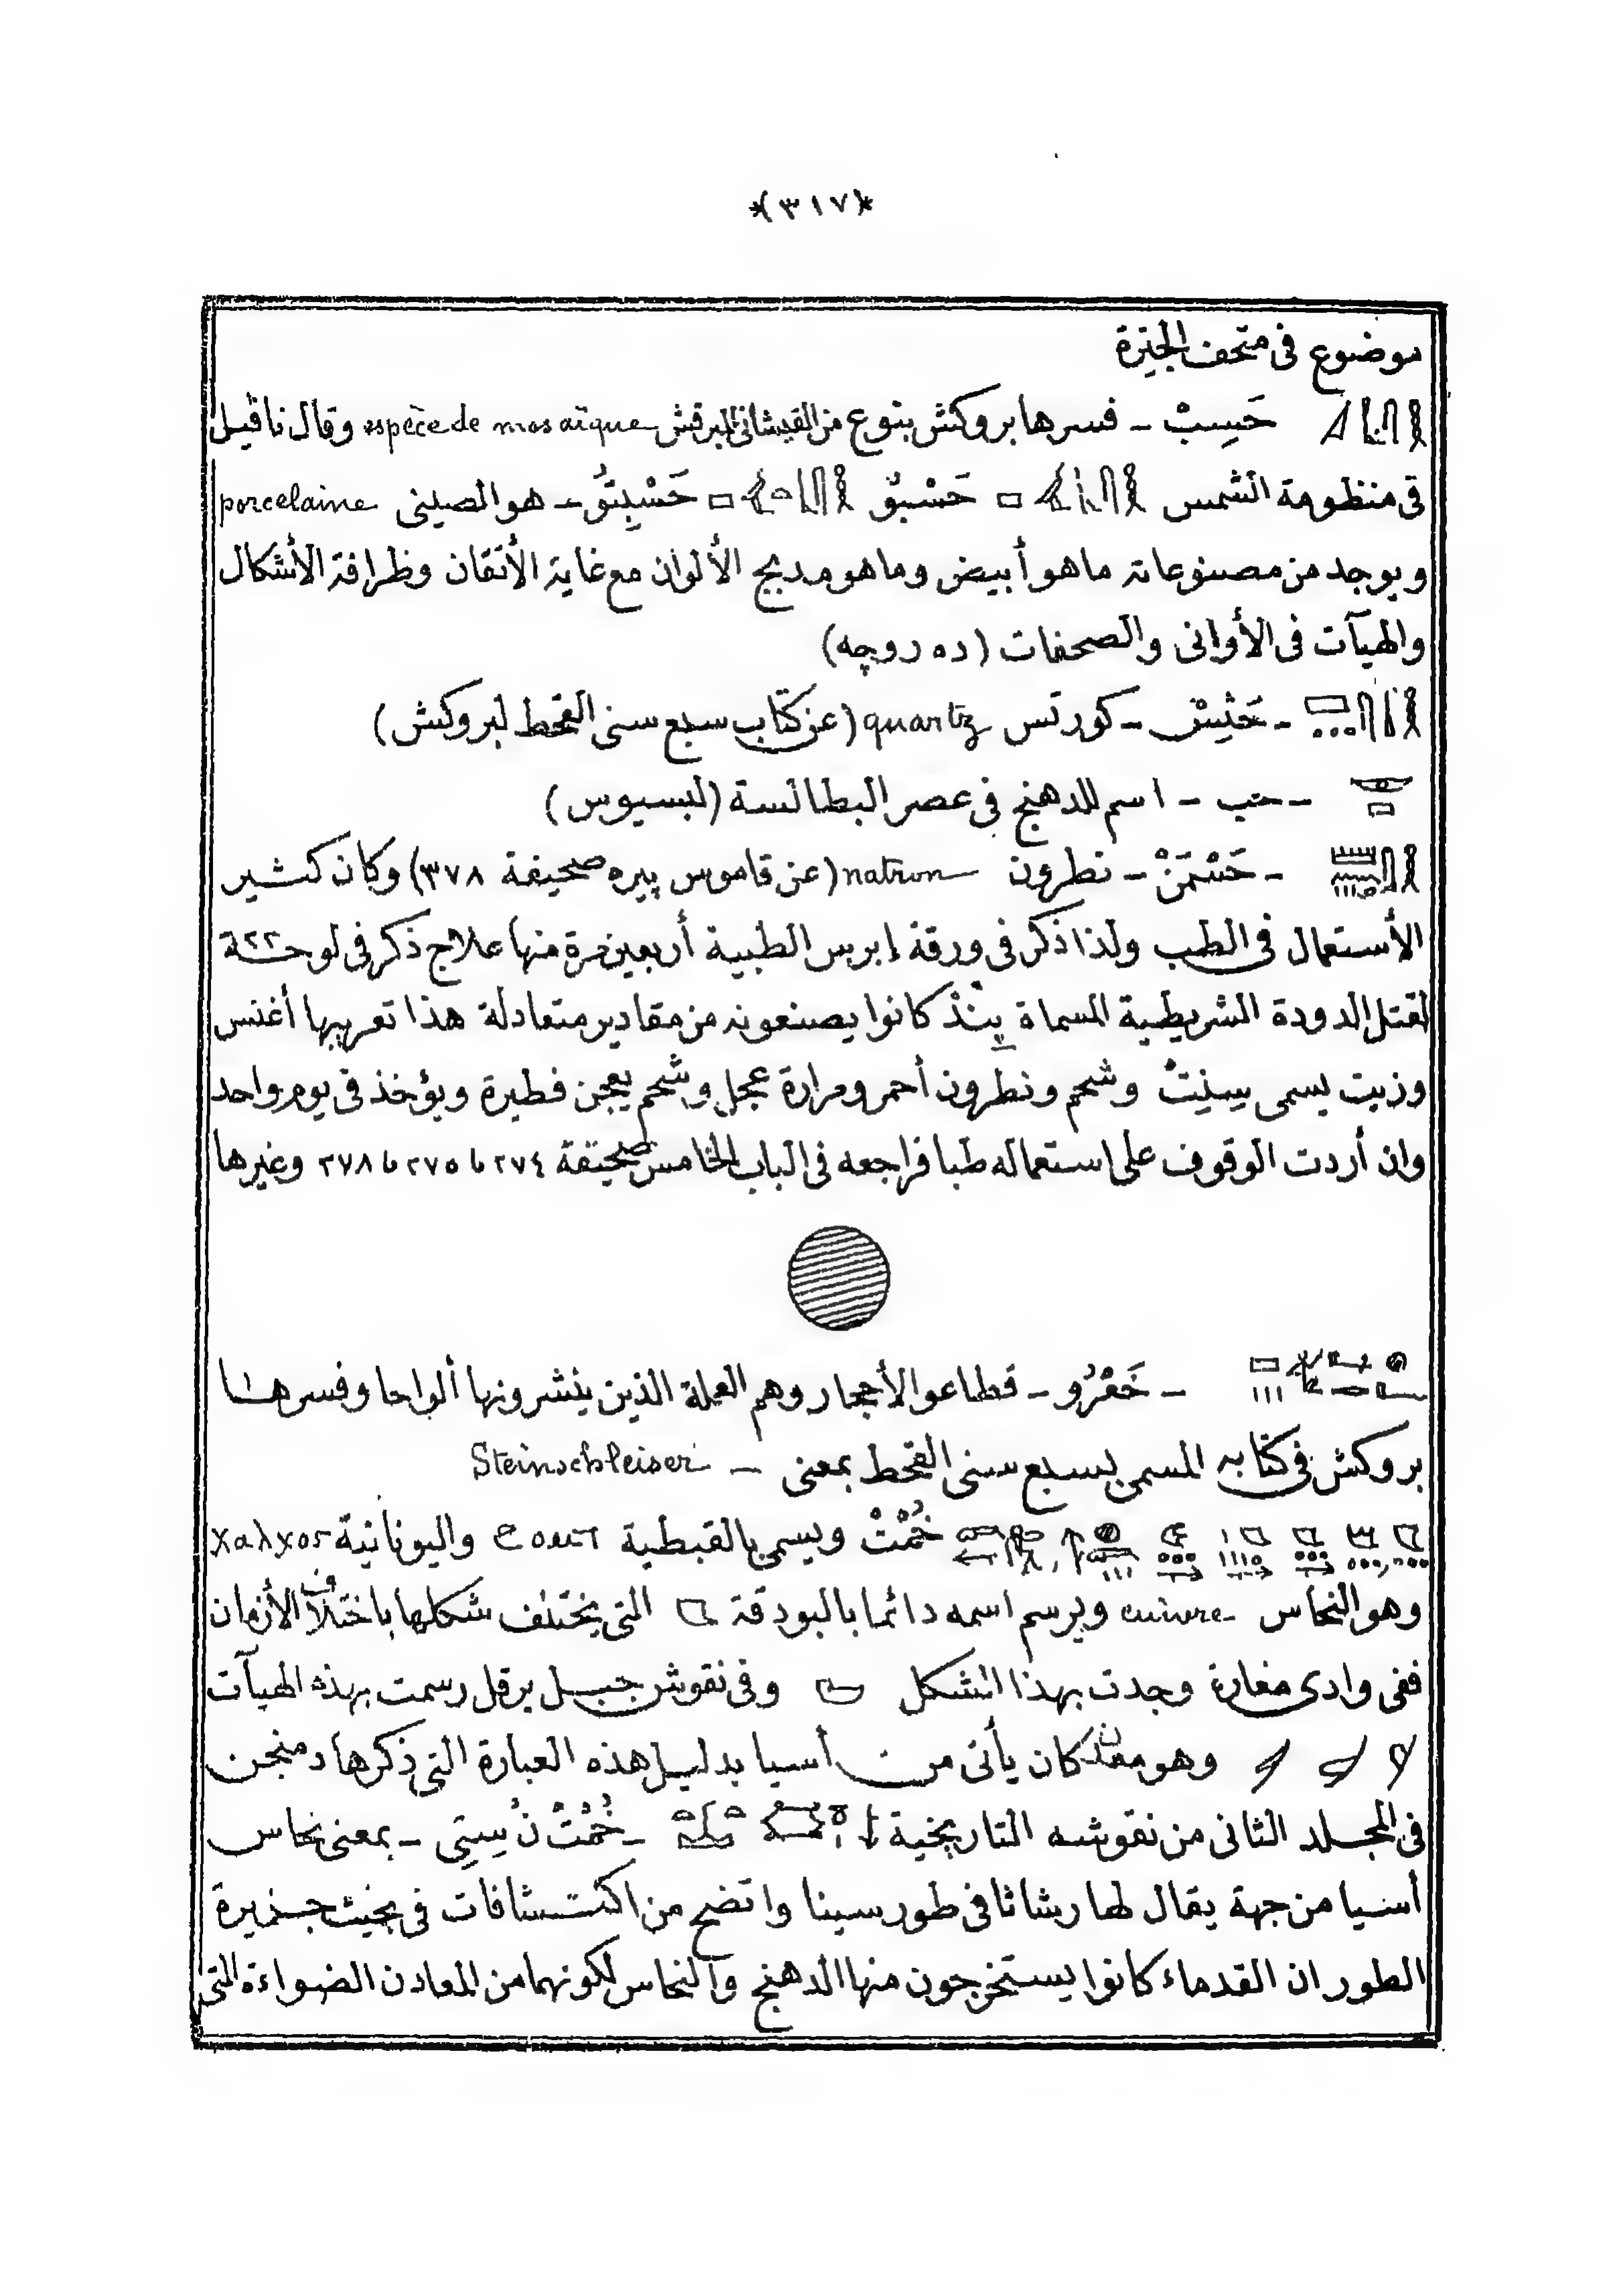 *(٣١٧)*
موضوع فى متحف الجيزة
حَسِبْ - فسرها بروكش بنوع من القيشانى المبرقش espèce de mosaïque وقال نافيل
فى منظومة الشمس حَسْبُو حَسْبِتُو - هو الصينى porcelaine
ويوجد من مصنوعاته ما هو أبيض وما هو مدبج الألوان مع غاية الأتقان وظرافة الأشكال
والهيآت فى الأوانى والصحفات (ده روچه)
- حَنْسِ - كورتس quartz (عن كتاب سبع سنى القحط لبروكش)
- حتب - اسم للدهنج فى عصر البطالسة (لبسيوس)
- حَسْمَنْ - نطرون natron (عن قاموس پيره صحيفة ٣٧٨) وكان كثير
الأستعمال فى الطب ولذا ذكر فى ورقة إبرس الطبية أربعين مرة منها علاج ذكر فى لوحة ٢٢
لقتل الدودة الشريطية المسماة بِنْدْ كانوا يصنعونه من مقادير متعادلة هذا تعريبها أغنس
وزيت يسمى وشحم ونطرون أحمر ومرارة عجل وشحم يعجن فطيرة ويؤخذ فى يوم واحد
وان أردت الوقوف على استعماله طبا فراجعه فى الباب الخامس صحيفة ٢٧٤ ٢٧٥ ٢٧٨ وغيرها
- خَعْرُو - قطاعو الأحجار وهم العملة الذين ينشرونها ألواحا وفسرها
بروكش فى كتابه المسمى بسبع سنى القحط بمعنى - Steinschleiser
خُمْتْ ويسمى بالقبطية واليونانية χαλχος
وهو النحاس cuivre ويرسم اسمه دائما بالبودقة التى يختلف شكلها باختلاف الأزمان
ففى وادى مغارة وجدت بهذا الشكل وفى نقوش جبل برقل رسمت بهذه الهيآت
وهو معدن كان يأتى من أسيا بدليل هذه العبارة التى ذكرها دمنجن
فى المجلد الثانى من نقوشه التاريخية - خُمْتُ نُ سِتِى - بمعنى نحاس
أسيا من جهة يقال لها رشاثا فى طور سينا واتضح من اكتشافات فى بخيث جزيرة
الطور ان القدماء كانوا يستخرجون منها الدهنج والنحاس لكونهما من المعادن الضواءة التى